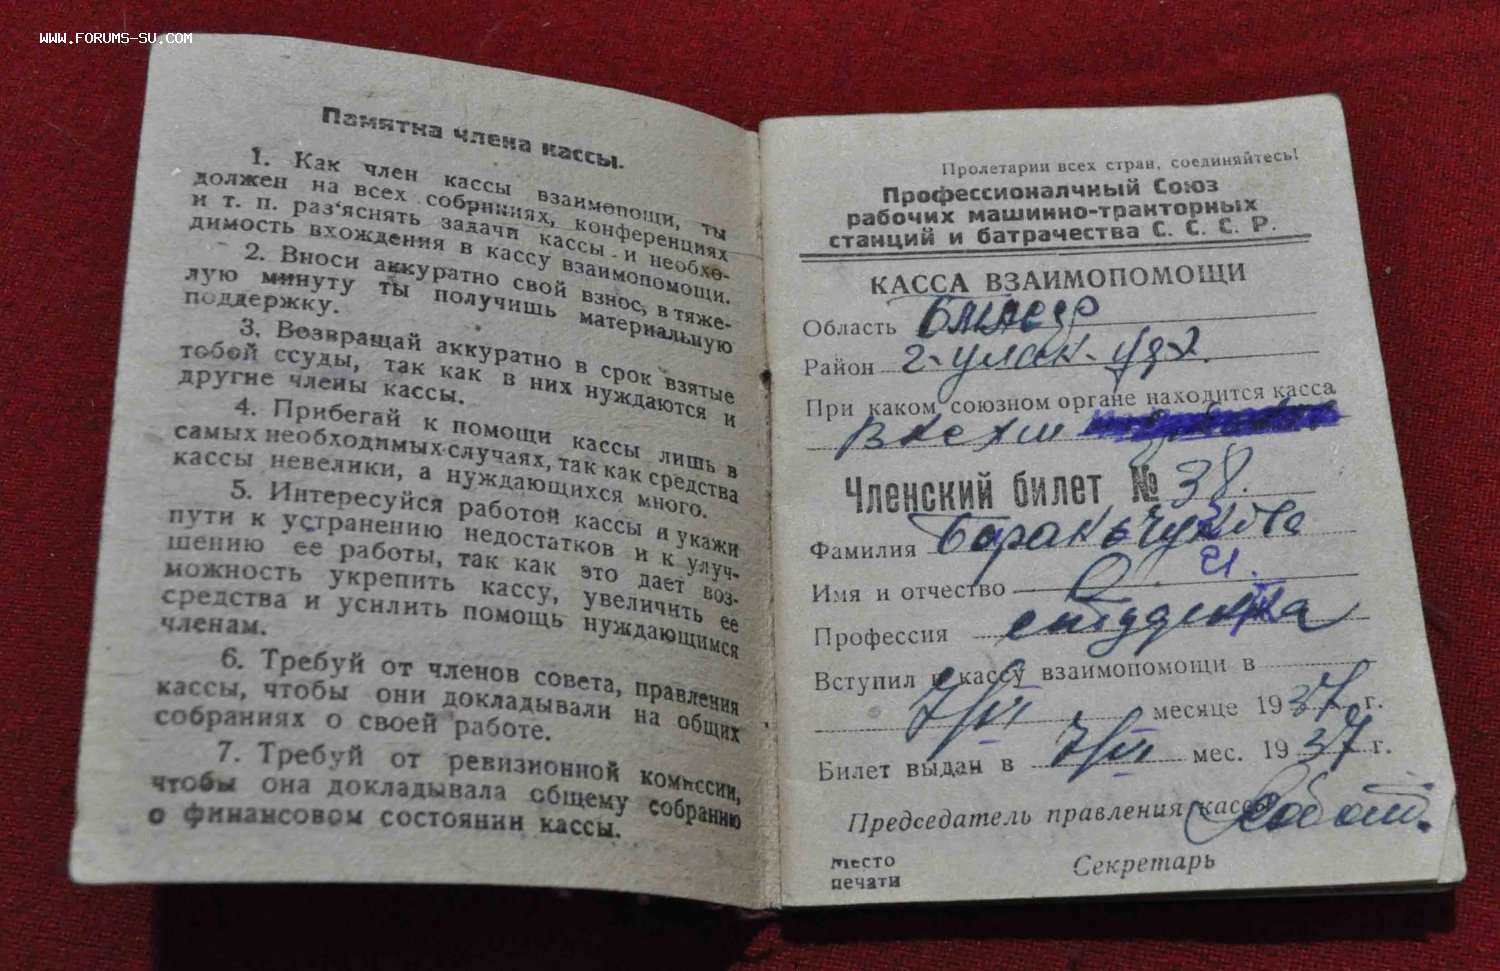 WWW.FORUMS-SU.COM
Памятка члена кассы.
1. Как член кассы взаимопощи, ты
должен на всех собриниях, конференциях
и т. п. раз'яснять задачи кассы и необхо-
димость вхождения в кассу взаимопомощи.
2. Вноси аккуратно свой взнос, в тяже-
лую минуту ты получишь материальную
поддержку.
3. Возвращай аккуратно в срок взятые
тобой ссуды, так как в них нуждаются и
другие члены кассы.
4. Прибегай к помощи кассы лишь в
самых необходимых случаях, так как средства
кассы невелики, а нуждающихся много.
5. Интересуйся работой кассы и укажи
пути к устранению недостатков и к улуч-
шению ее работы, так как это дает воз-
можность укрепить кассу, увеличить ее
средства и усилить помощь нуждающимся
членам.
6. Требуй от членов совета, правления
кассы, чтобы они докладывали на общих
собраниях о своей работе.
7. Требуй от ревизионной комиссии,
чтобы она докладывала общему собранию
о финансовом состоянии кассы.
Пролетарии всех стран, соединяйтесь!
Профессионалчный Союз
рабочих машинно-тракторных
станций и батрачества С. С. С. Р.
КАССА ВЗАИМОПОМОЩИ
Область БМАССР
Район г-улан-удэ.
При каком союзном органе находится касса
ВКСХШ
Членский билет № 38.
Фамилия
Имя и отчество
Профессия студентка
Вступил в кассу взаимопомощи в
7/VI месяце 1937 г.
Билет выдан в 7/VI мес. 1937 г.
Председатель правления кассы
Секретарь
Место
печати